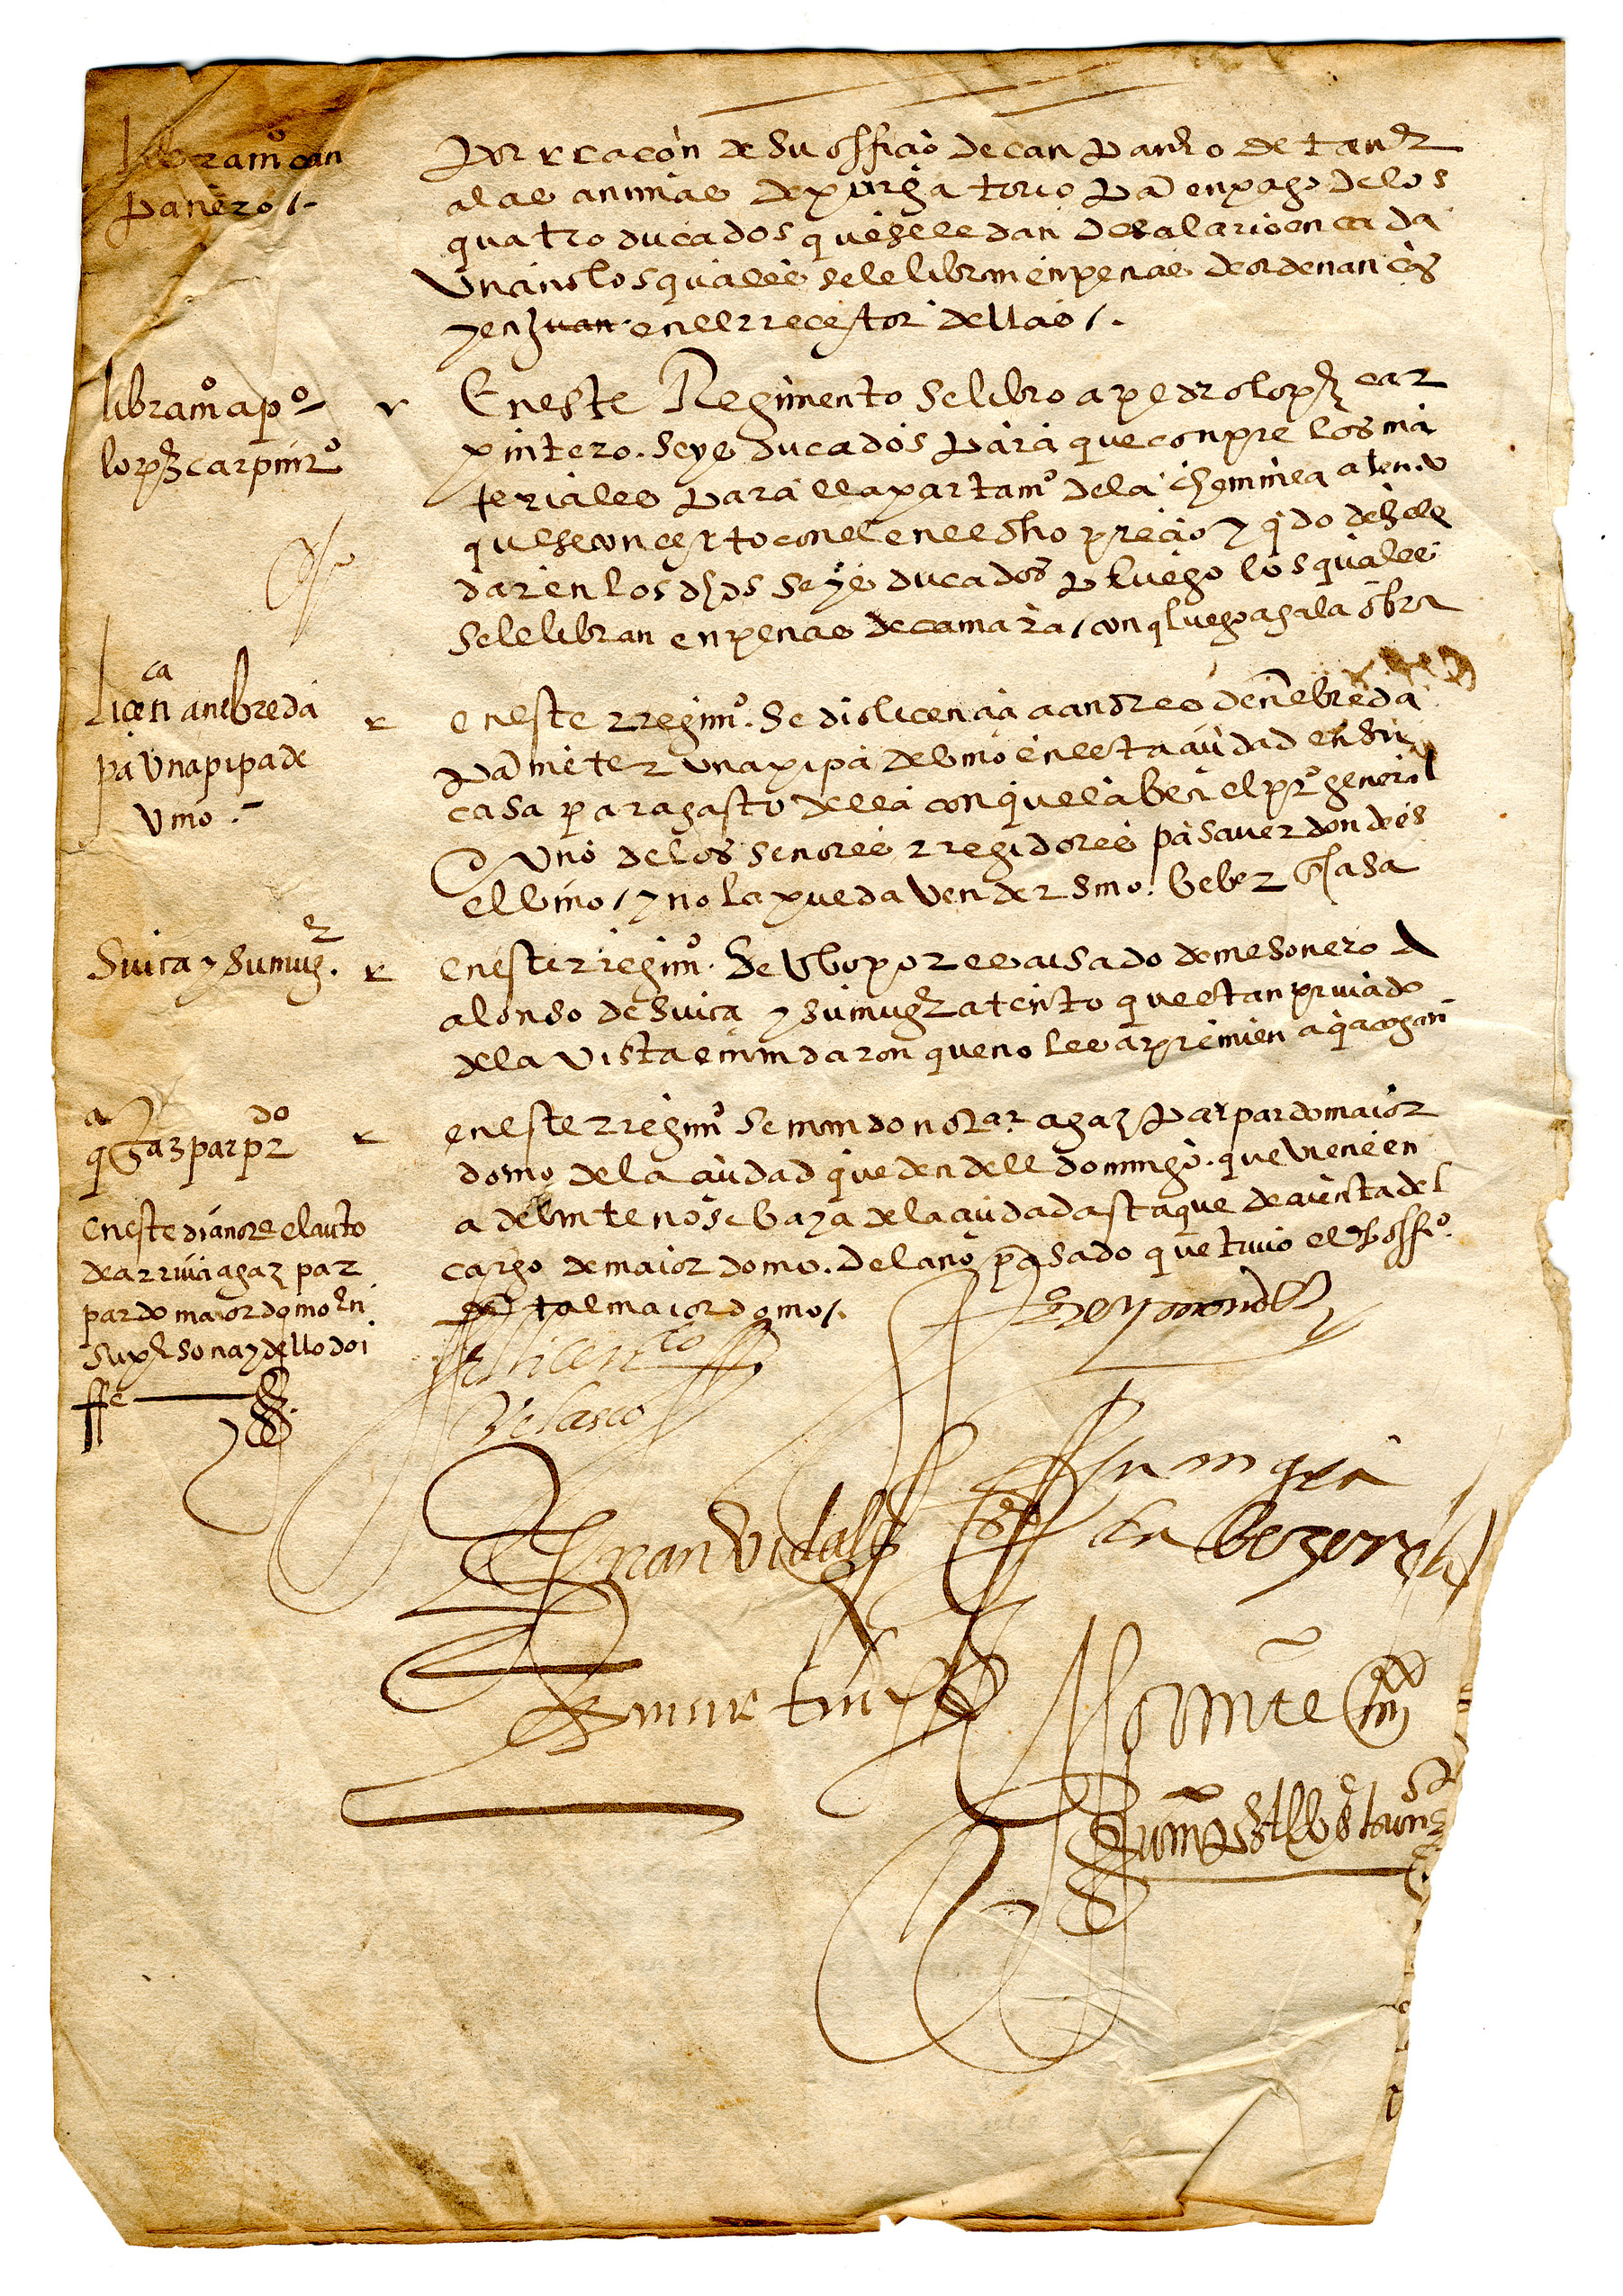 libramo can
panero /-
por rraçon de su officio de can panero de taner
a las animas de purgatorio pa en pago de los
quatro ducados que se le dan de salario en cada
un ano los quales se le libran en penas de ordenanças
y en Juan en el rreceptor dellas /.
libramo a po
lopz carpinro
En este Regimento se libro a pedro lopz car
pintero. seys ducados para que conpre los ma
teriales para el apartamo de la cheminea
que se concerto con el en el dho precio y
dar en los dhos seys ducados luego los quales
se le libran en penas de camara / con q luego aga la obra
licenca a nebreda
pa una pipa de
vino.-
en este rregimo. se dio licencia a andres de nebreda
pa meter una pipa de vino en esta ciudad en su
casa para gasto della con que la bea el pror general
o uno de los senores rregidores pa saver donde es
el vino / y no la pueda vender sino. beber en casa
Suica y su muger.
en este rregimo. se ubo por escusado de mesonero a
alonso de suica y su muger atento que estan privado
de la vista e mandaron que no les apremien a q acogan
qa Gaspar pardo
en este rregimo se mando notar a gaspar pardo maior
domo de la ciudad que dende el domingo. que viene en
adelante no se baya de la ciudad asta que de cuenta del
cargo de maiordomo. del ano pasado que tuvo el dho offio.
de tal maiordomo /.
en este dia note el auto
de arriva a gaspar
pardo maiordomo en
su persona y dello doi
ffe
El licendo
Velasco
Juan Vidal
Juan mexia